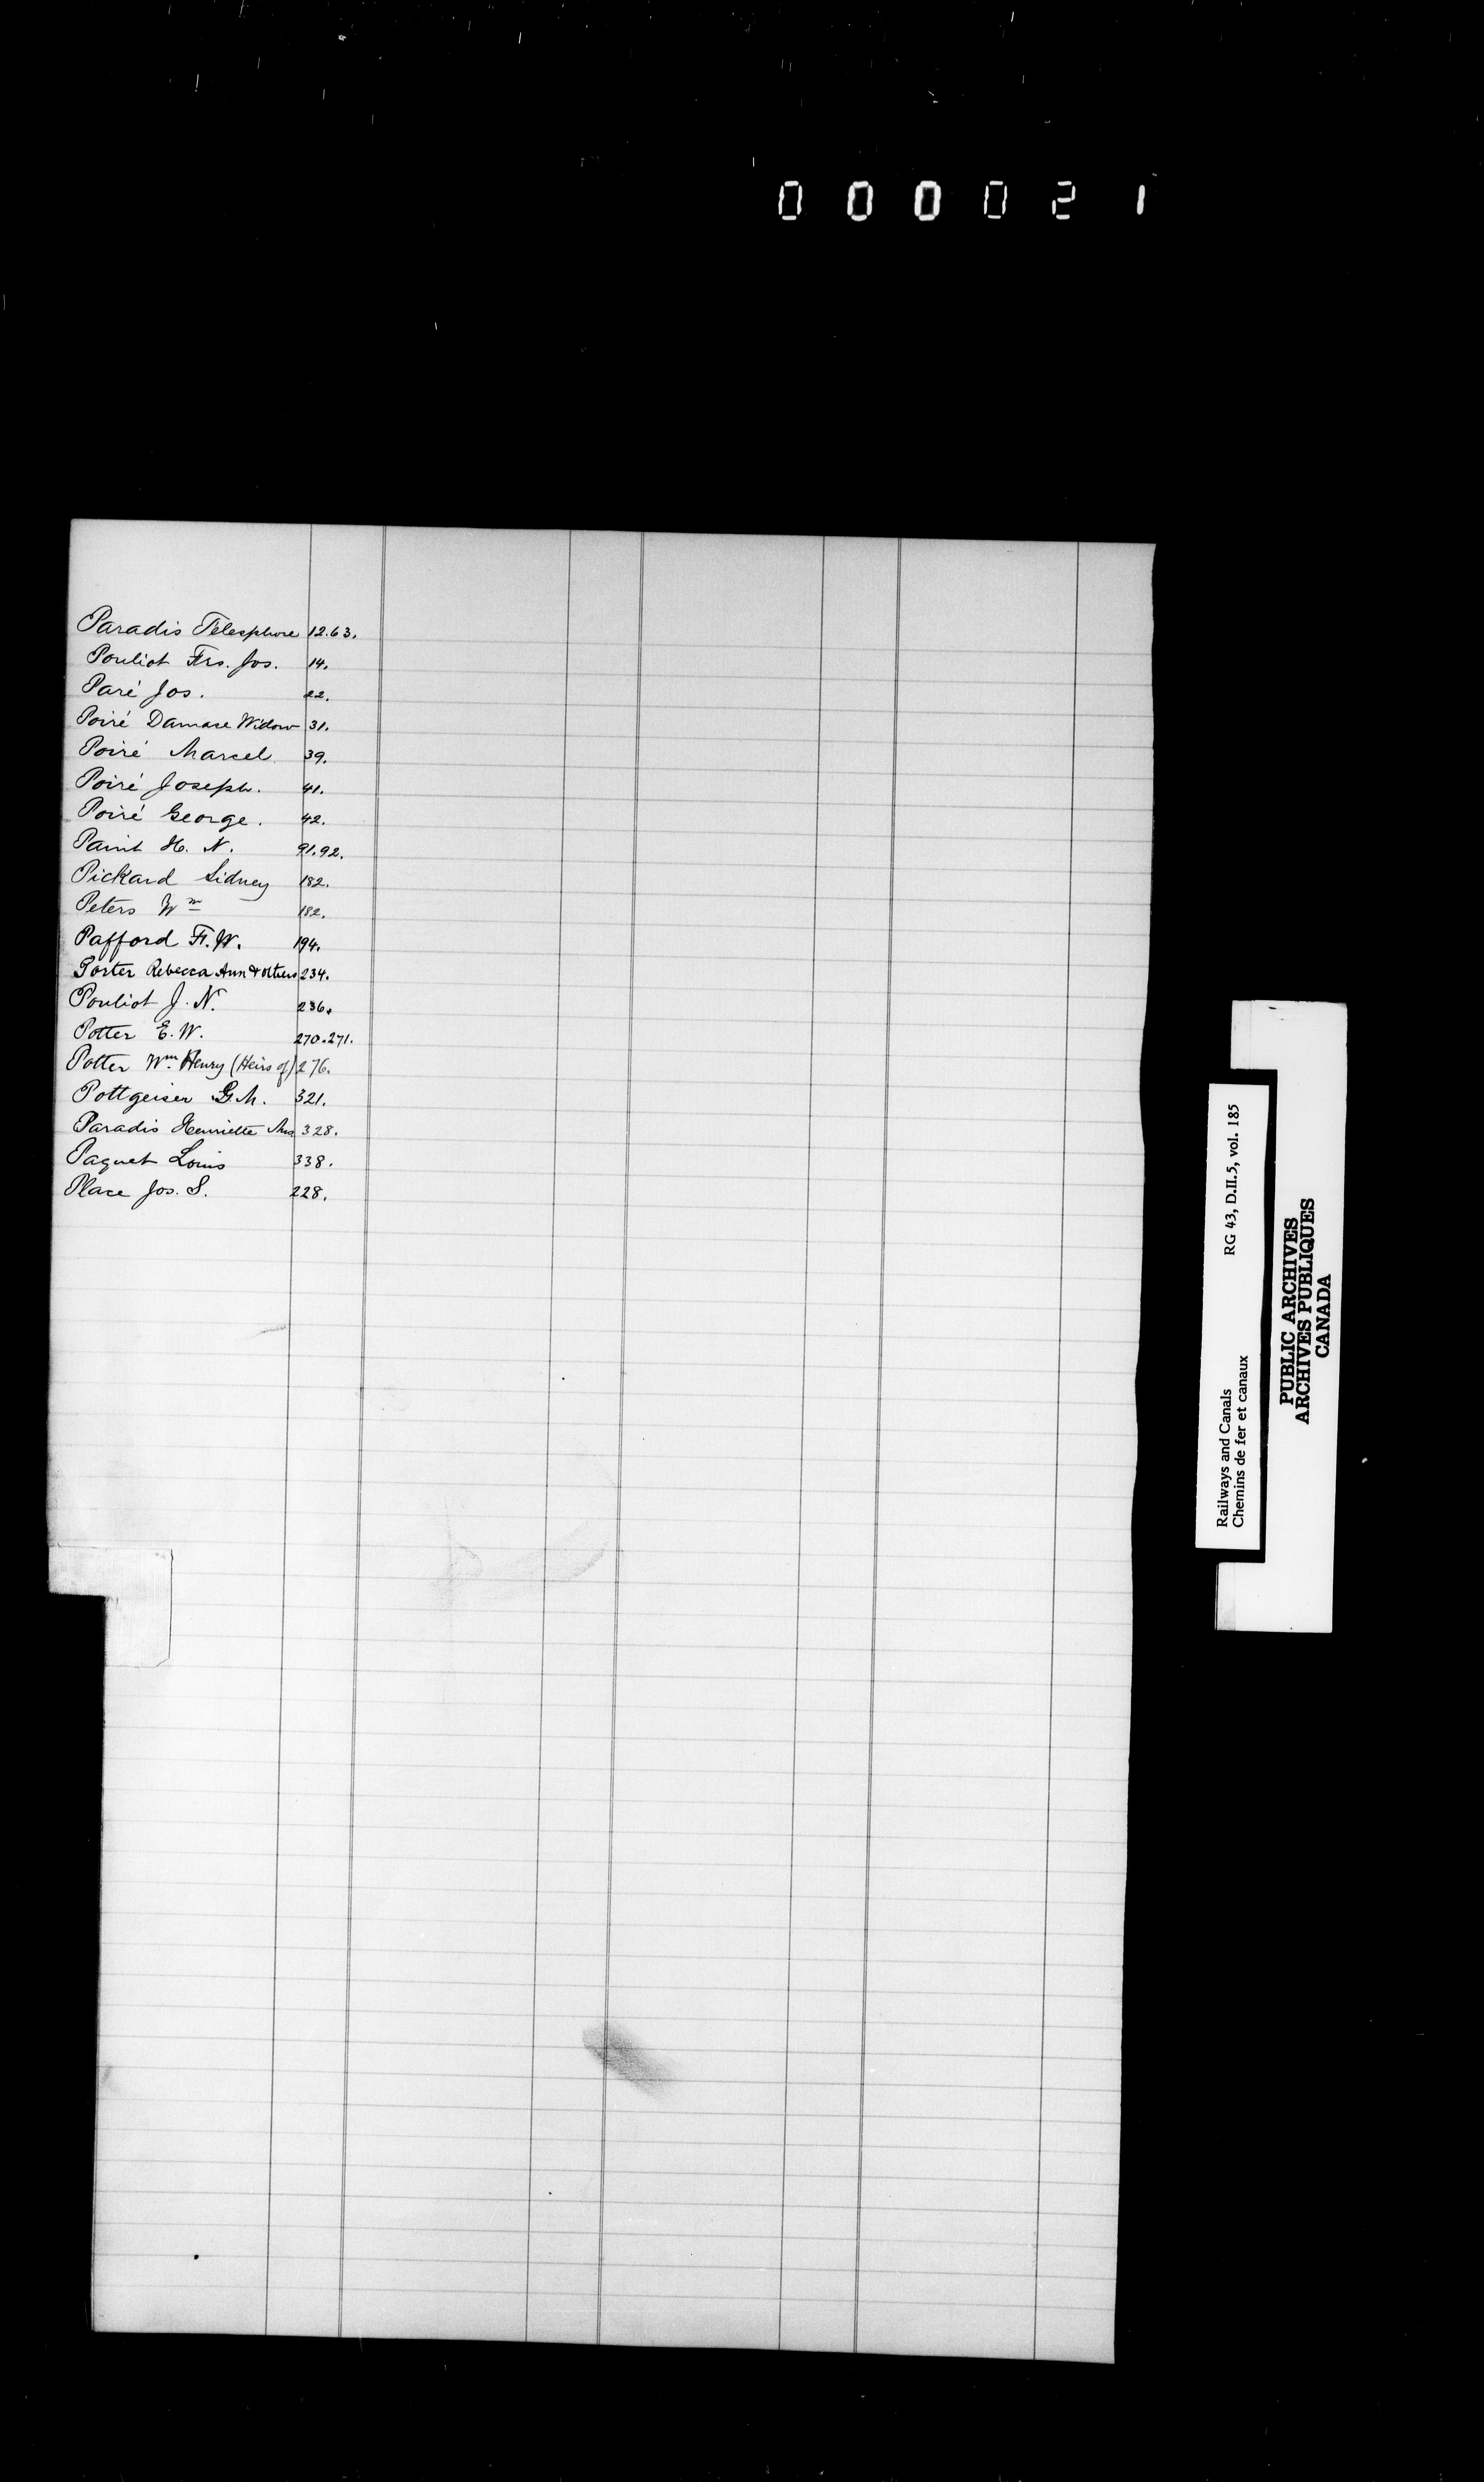 000021
Paradis Télesphore 12.63.
Pouliot Frs. Jos. 14.
Paré Jos. 22.
Poiré Damase Widow 31.
Poiré Marcel 39.
Poiré Joseph. 41.
Poiré George. 42.
Paint H. N. 91.92.
Pickard Sidney 182.
Peters Wm 182.
Pafford F. W. 194.
Porter Rebecca Ann & others 234.
Pouliot J. N. 236.
Potter E. W. 270.271.
Potter Wm. Henry (Heirs of) 276.
Pottgeiser G. M. 321.
Paradis Henriette Mrs 328.
Paquet Louis 338.
Place Jos. S. 228.
Railways and Canals RG 43, D.II.5, vol. 185
Chemins de fer et canaux
PUBLIC ARCHIVES
ARCHIVES PUBLIQUES
CANADA